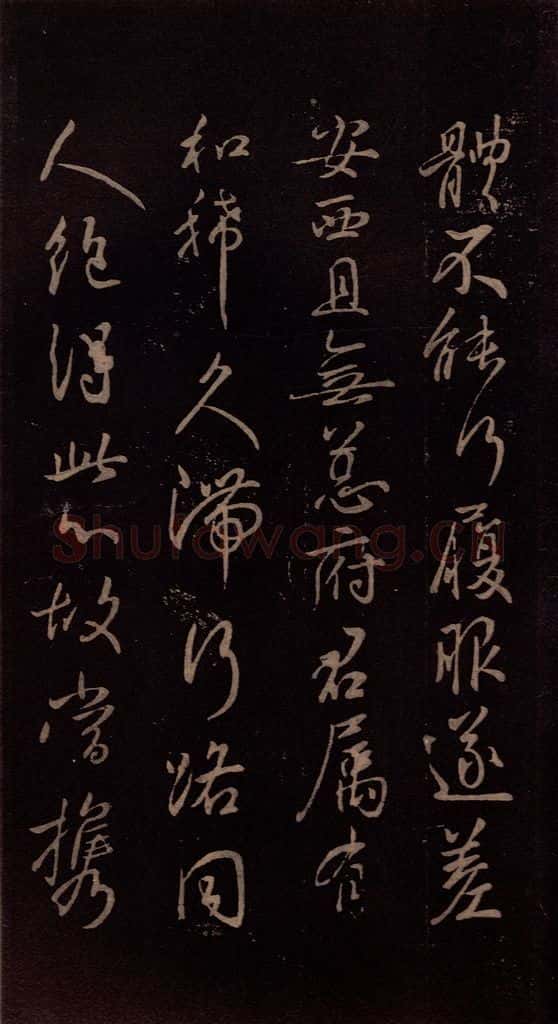 體不能行履眼遂差
安西且無恙府君屬有
和稀久滯行路同
人絕得此心故當攜
Shufawang.cn